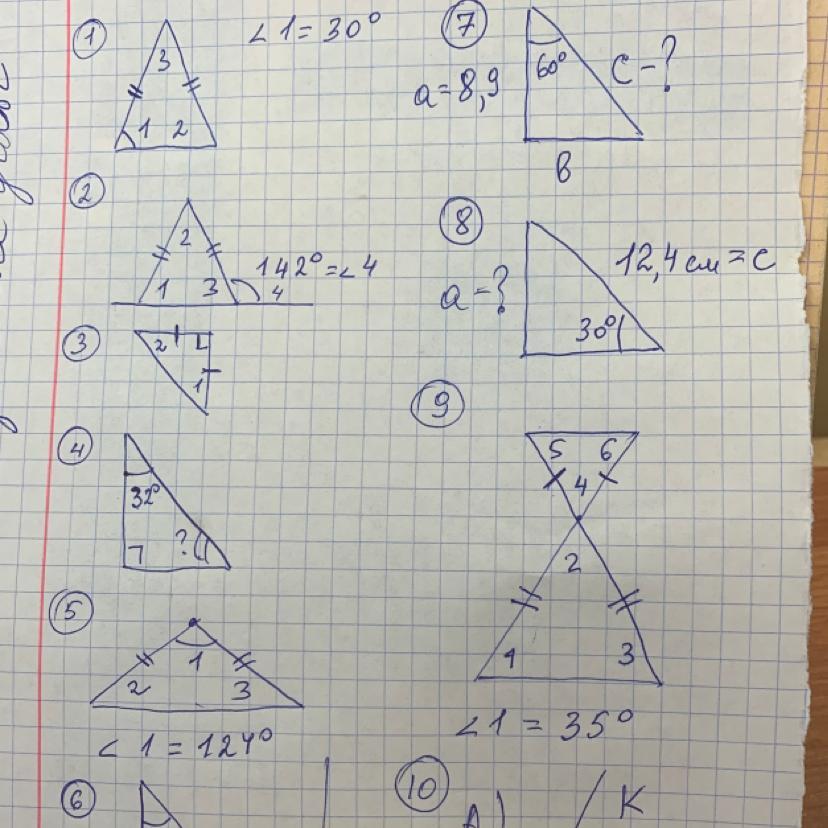 ① ∠1=30°
3
1 2
②
2
1 3 142°=∠4
4
③
2
1
④
32°
?
⑤
1
2 3
∠1=124°
⑥
⑦
60°
a=8,9 c-?
в
⑧
12,4см=c
a-?
30°
⑨
5 6
4
2
1 3
∠1=35°
⑩
К